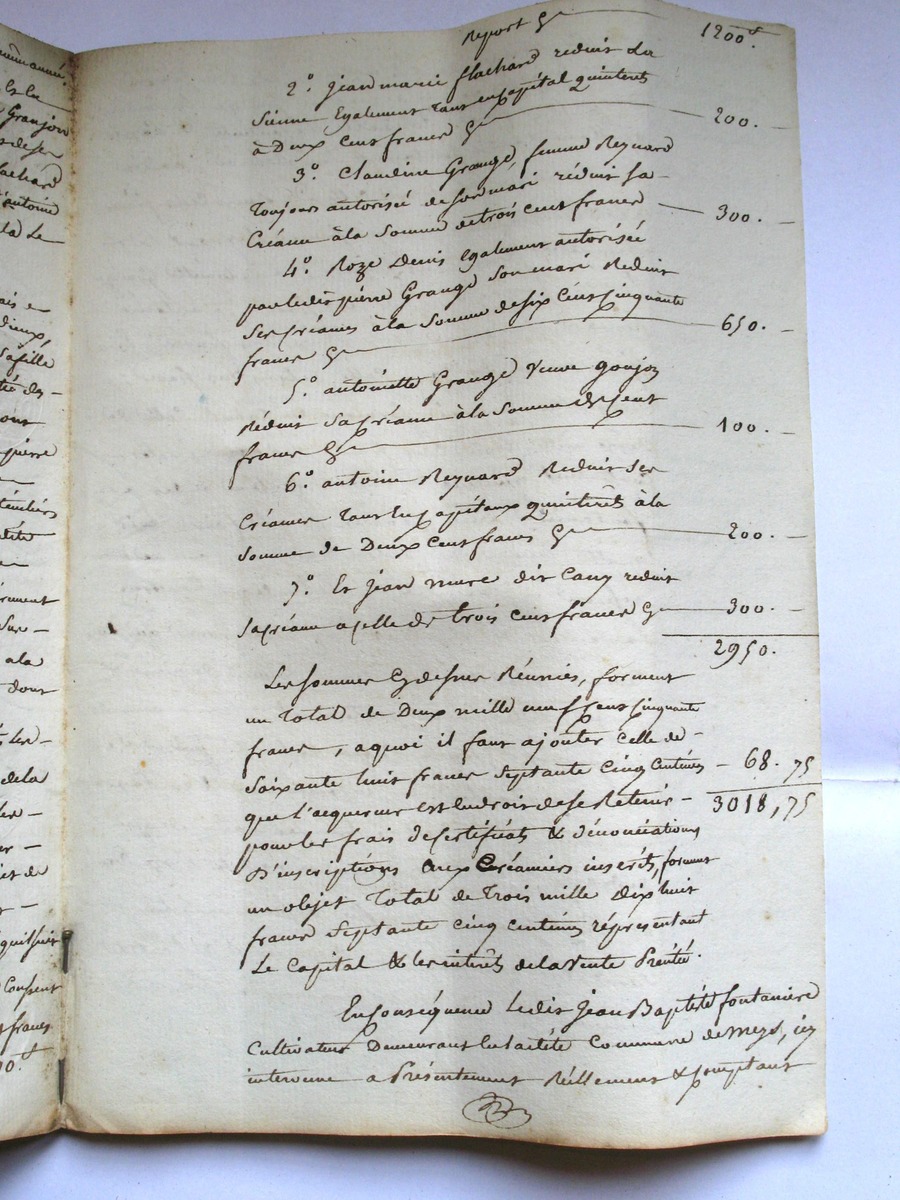 ommannée
Est en
Granjon
Lachard
antoine
la Le
ais e
dieux
sa fille
tié des
pierre
dite
Sur
ala
dont
dela
et de
quil suit
Consent
francs
Report Cy 1200 ''
2.° jean marie flachard reduit La
Sienne Egalement tant en Capital qu'interets
à Deux Cent francs Cy 200. -
3.° Claudine Grange, femme Reynard
Toujours autorisée de son mari réduit Sa
Créance à la Somme de trois cent francs 300. -
4.° Roze Denis également autorisée
par ledit pierre Grange Son mari Reduit
Ses Créances à la Somme de six Cent Cinquante
francs Cy 650. -
5.° antoinette Grange Veuve goujon
Réduit Sa Créance à la Somme de Cent
francs Cy 100. -
6.° antoine Reynard Reduit Ses
Créances Tant en Capitaux qu'intérêts à la
Somme de Deux Cent francs Cy 200. -
7.° Et jean murc dit Cany reduit
Sa Créance a Celle de trois Cent francs Cy 300. -
2950.
Les Sommes Cy dessus Réunies, forment
un Total de Deux mille neuf Cent Cinquante
francs, a quoi il faut ajouter Celle de
Soixante huit francs Septante Cinq Centimes - 68. 75
que l'acquereur est en droit de se Retenir - 3018,75
pour les frais de Certificats & dénonciations
D'inscriptions aux Créanciers inscrits, forment
un objet Total de Trois mille Dix huit
francs Septante Cinq Centimes réprésentant
Le Capital & les intérêts de la Vente Précitée.
En Conséquence Ledit Jean Baptiste fontaniere
Cultivateur Demeurant en la Commune de meys, icy
intervenu a Présentement Réellement & Comptant